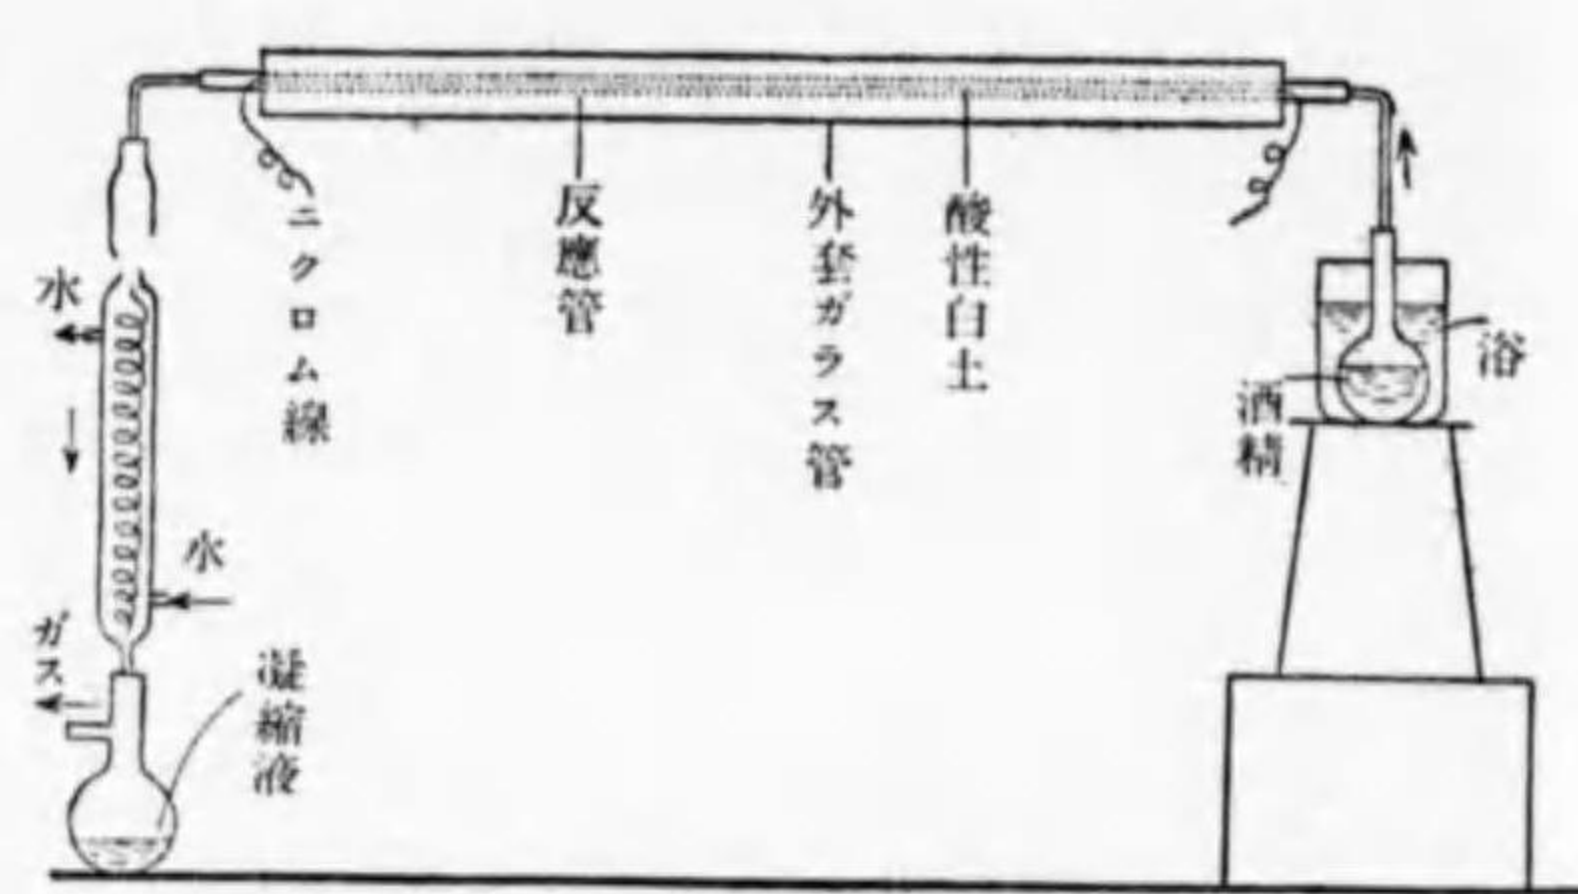 ニクロム線
反應管
外套ガラス管
酸性白土
浴
酒精
水
水
ガス
凝縮液